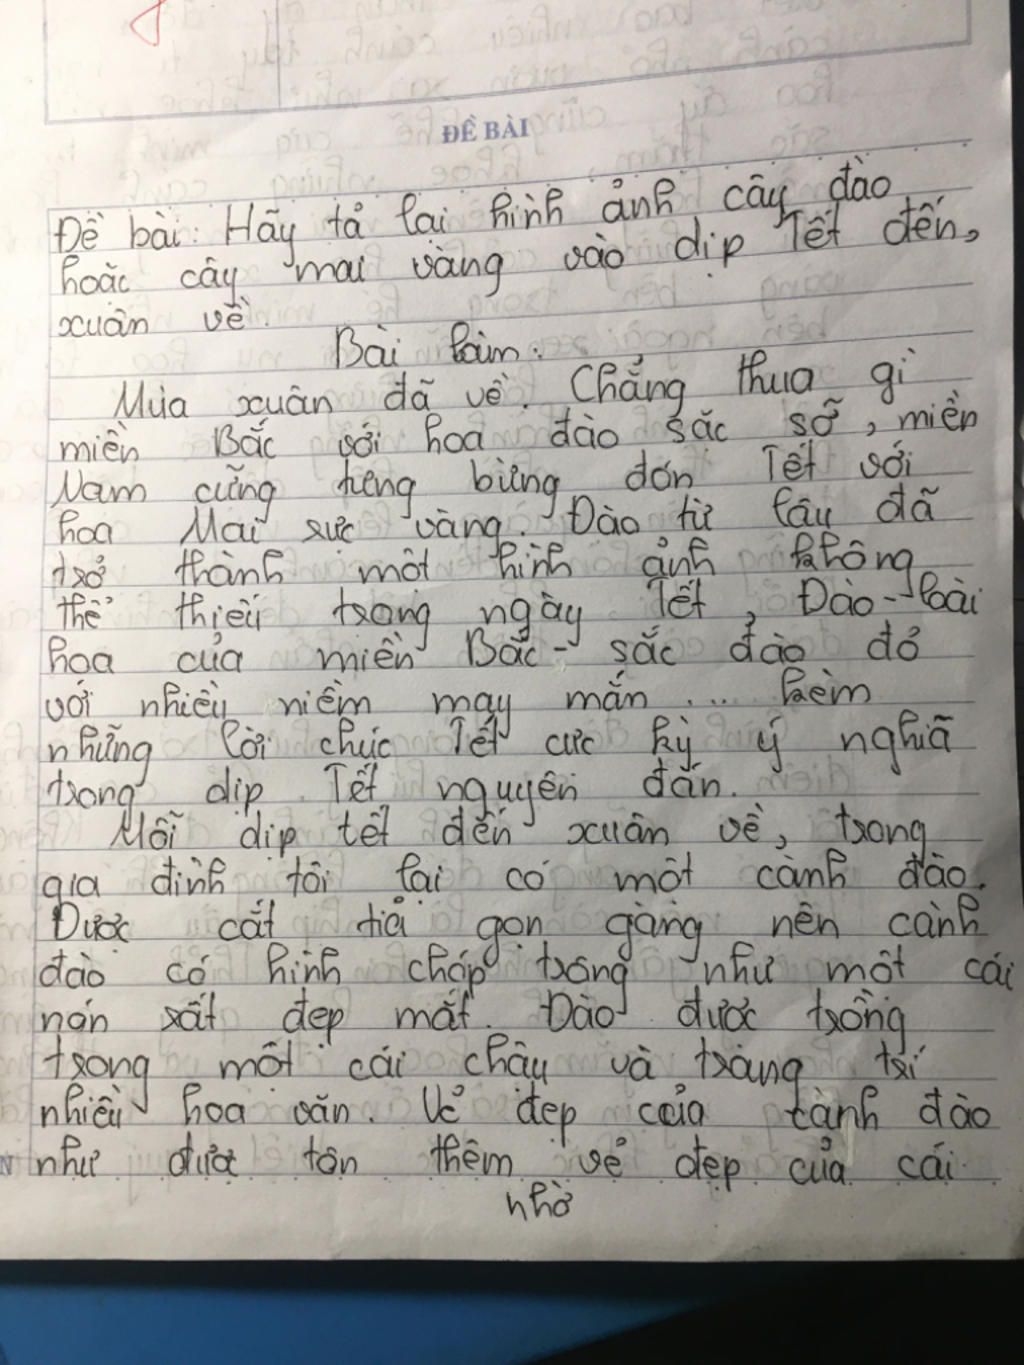 ĐỀ BÀI
Đề bài: Hãy tả lại hình ảnh cây đào
hoặc cây mai vàng vào dịp Tết đến,
xuân về.
Bài làm.
Mùa xuân đã về. Chẳng thua gì
miền Bắc với hoa đào sắc sỡ, miền
Nam cũng tưng bừng đón Tết với
hoa Mai sực vàng. Đào từ lâu đã
trở thành một hình ảnh không
thể thiếu trong ngày Tết, Đào - loài
hoa của miền Bắc - sắc đào đỏ
với nhiều niềm may mắn ... kèm
những lời chúc Tết cực kỳ ý nghĩa
trong dịp Tết nguyên đán.
Mỗi dịp tết đến xuân về, trong
gia đình tôi lại có một cành đào.
Được cắt tỉa gọn gàng nên cành
đào có hình chóp trông như một cái
nón rất đẹp mắt. Đào được trồng
trong một cái chậu và trang trí
nhiều hoa văn. Vẻ đẹp của cành đào
như được tôn thêm vẻ đẹp của cái
nhờ